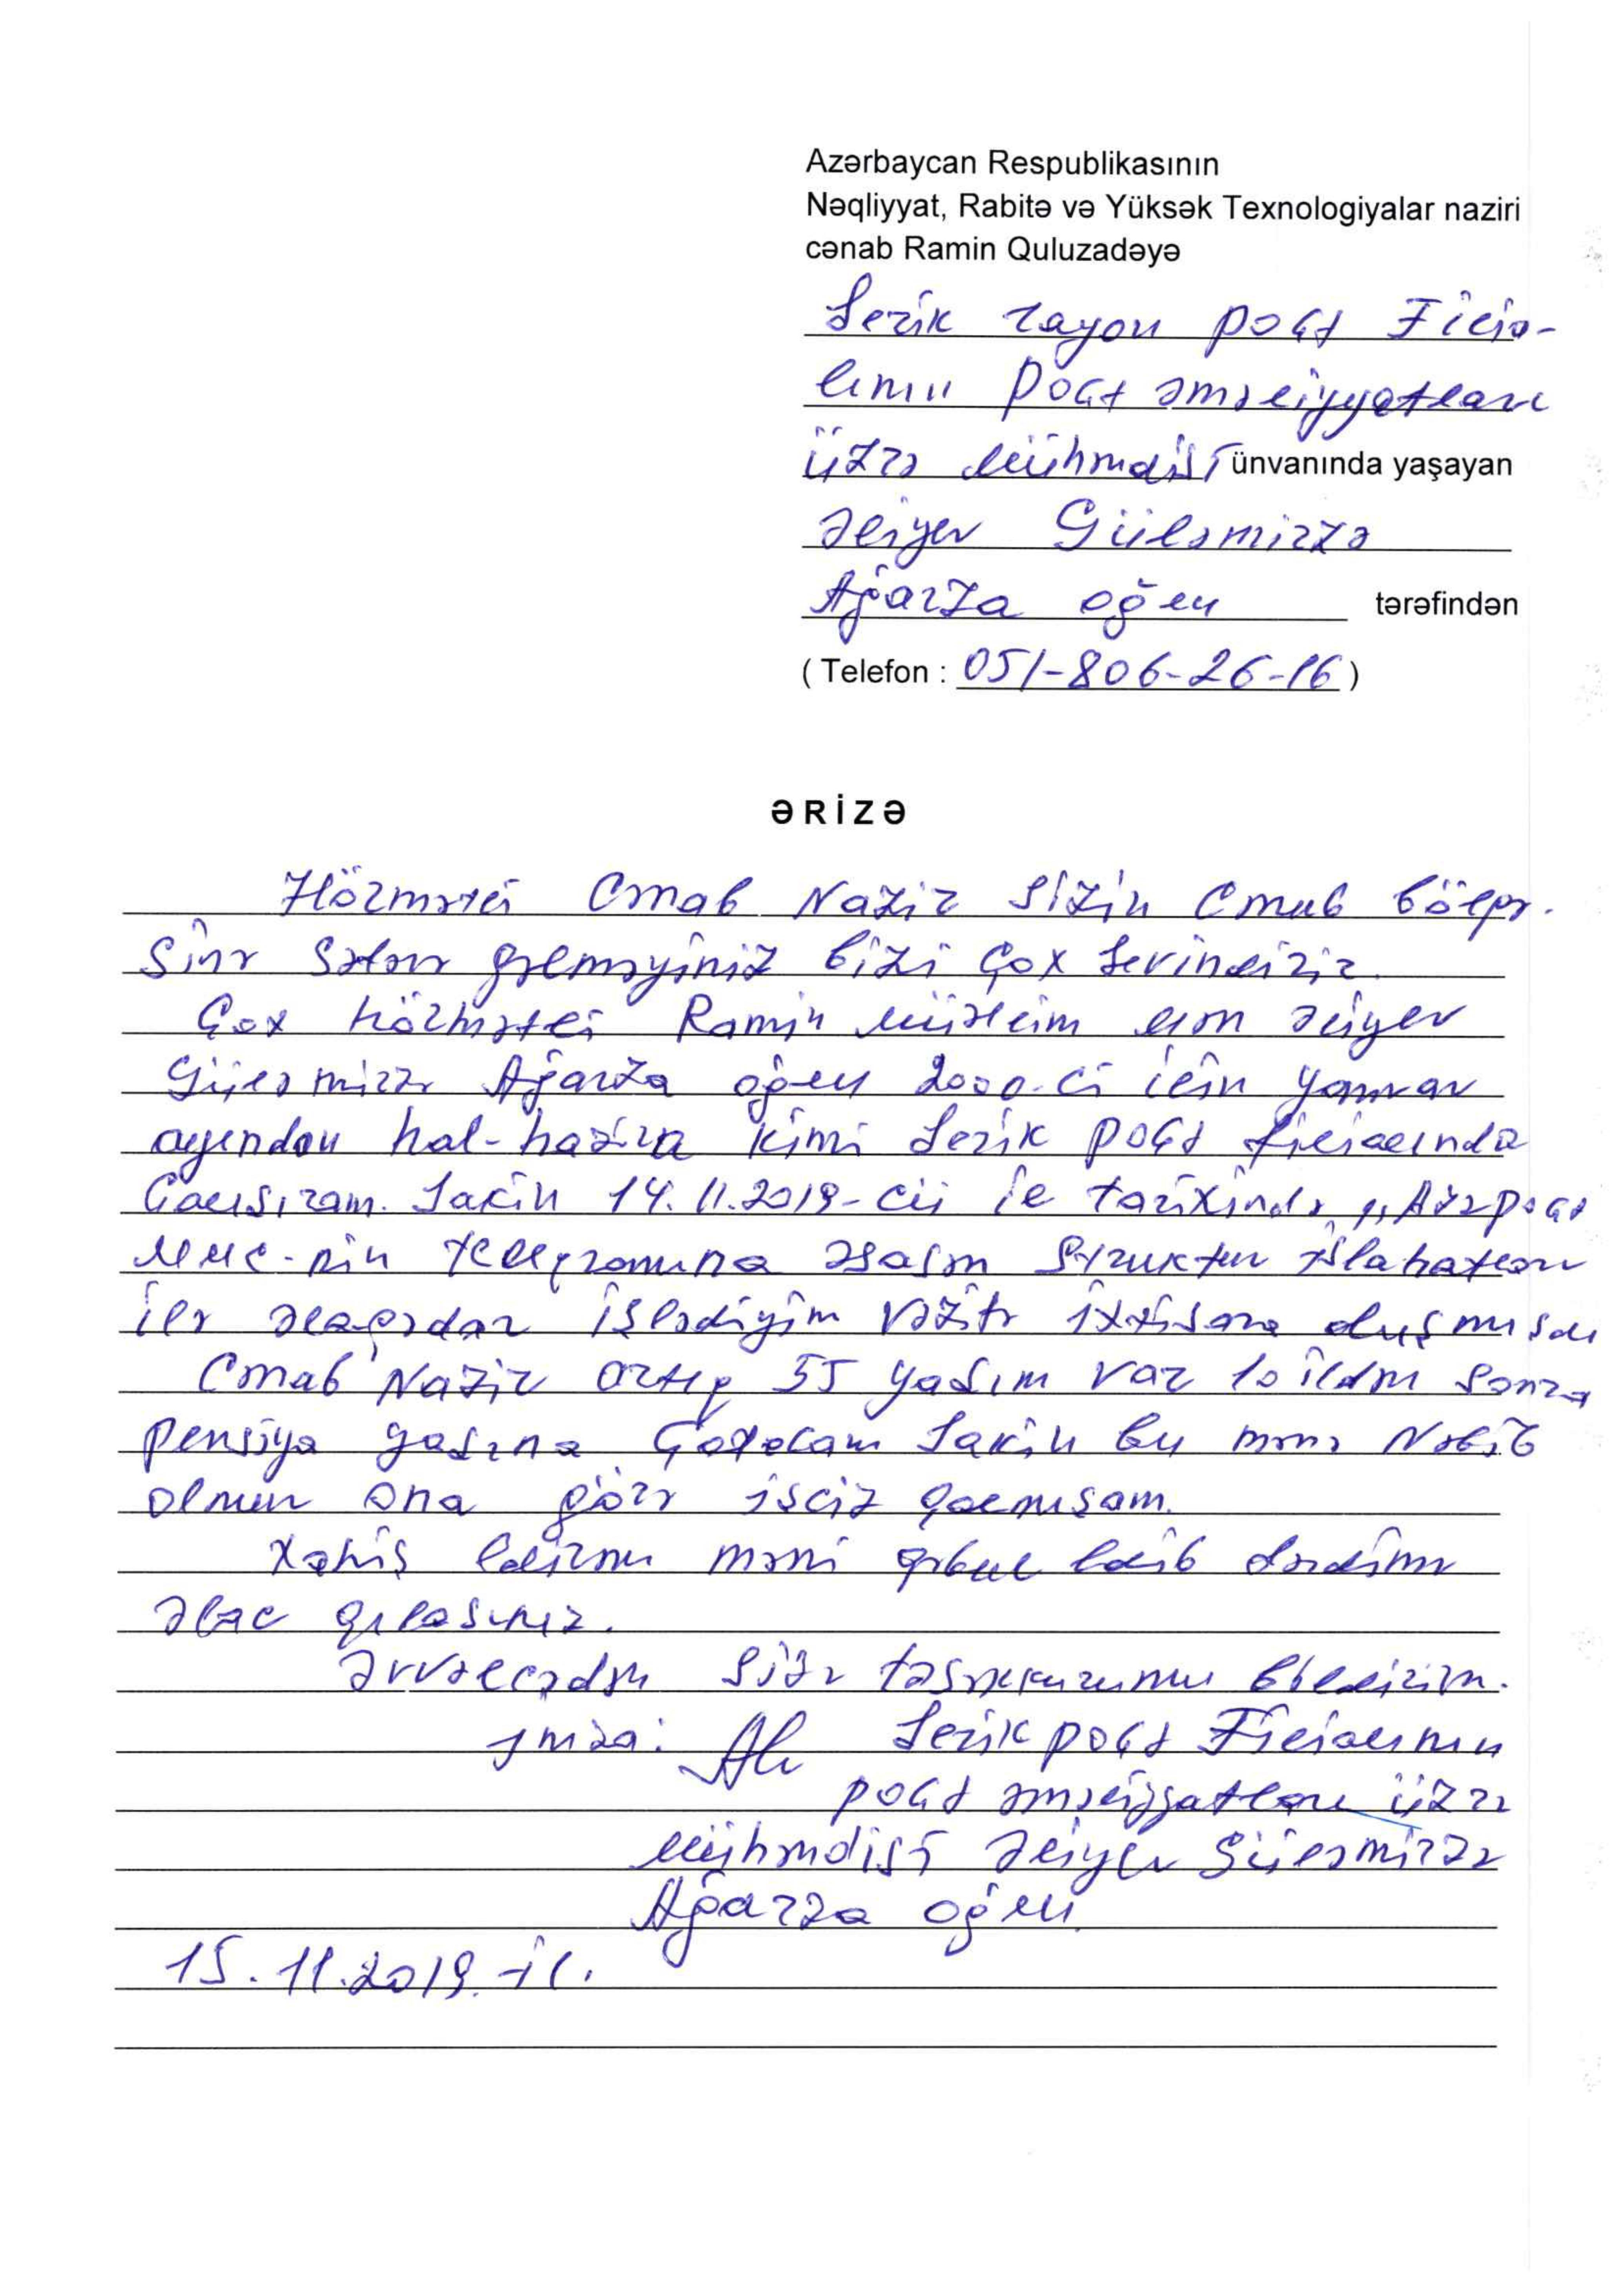 Azərbaycan Respublikasının
Nəqliyyat, Rabitə və Yüksək Texnologiyalar naziri
cənab Ramin Quluzadəyə
Lerik rayon poçt Filia-
lının Poçt əməliyyatları
üzrə Mühəndisi ünvanında yaşayan
Əliyev Güləmirzə
Ağarza oğlu tərəfindən
( Telefon : 051-806-26-16 )
ƏRİZƏ
Hörmətli Cənab Nazir Sizin Cənub bölgə-
sinə Səfər gəlməyiniz bizi çox Sevindirir.
Çox hörmətli Ramin Müəllim mən Əliyev
Güləmirzə Ağarza oğlu 2000-ci ilin yanvar
ayından hal-hazıra kimi Lerik poçt filialında
Çalışıram. Lakin 14.11.2019-cu il tarixində „Azərpoçt
MMC-nin teleqramına əsasən Struktur islahatları
ilə əlaqədar işlədiyim vəzifə ixtisara düşmüşdü
Cənab Nazir artıq 55 yaşım var 10 ildən Sonra
pensiya yaşına Çatacam Lakin bu mənə Nəsib
olmur ona görə işsiz qalmışam.
Xahiş edirəm məni qəbul edib dərdimə
əlac qılasınız.
Əvvəlcədən Sizə təşəkkürümü bildirirəm.
imza: Lerik poçt Filialının
poçt əməliyyatları üzrə
Mühəndisi Əliyev Güləmirzə
Ağarza oğlu
15.11.2019-il.